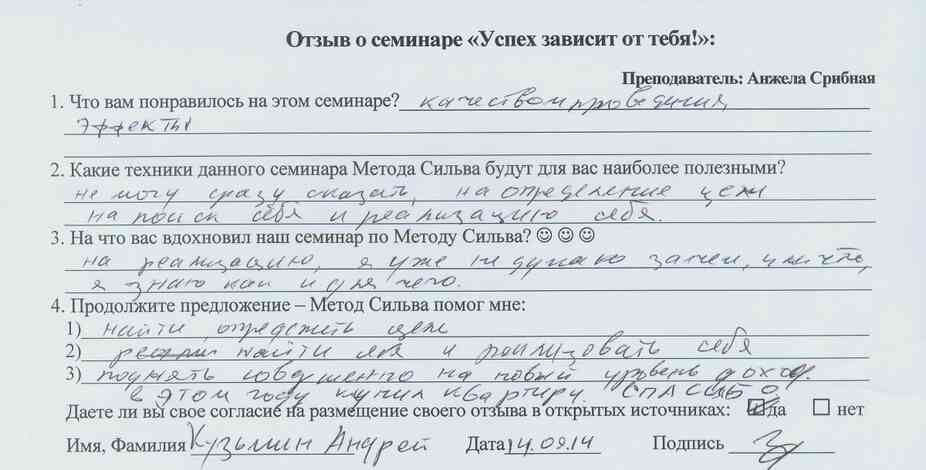 Отзыв о семинаре «Успех зависит от тебя!»:
Преподаватель: Анжела Срибная
1. Что вам понравилось на этом семинаре? качеством проведения,
эффекты
2. Какие техники данного семинара Метода Сильва будут для вас наиболее полезными?
не могу сразу сказать, на определение цели
на поиск себя и реализацию себя.
3. На что вас вдохновил наш семинар по Методу Сильва? ☺ ☺ ☺
на реализацию, я уже не думаю зачем, или что,
я знаю как и для чего.
4. Продолжите предложение – Метод Сильва помог мне:
1) найти определить цели
2) найти и реализовать себя
3) поднять совершенно на новый уровень доход.
в этом году купил квартиру. СПАСИБО
Даете ли вы свое согласие на размещение своего отзыва в открытых источниках: ☑ да ☐ нет
Имя, Фамилия Кузьмин Андрей Дата 14.09.14 Подпись